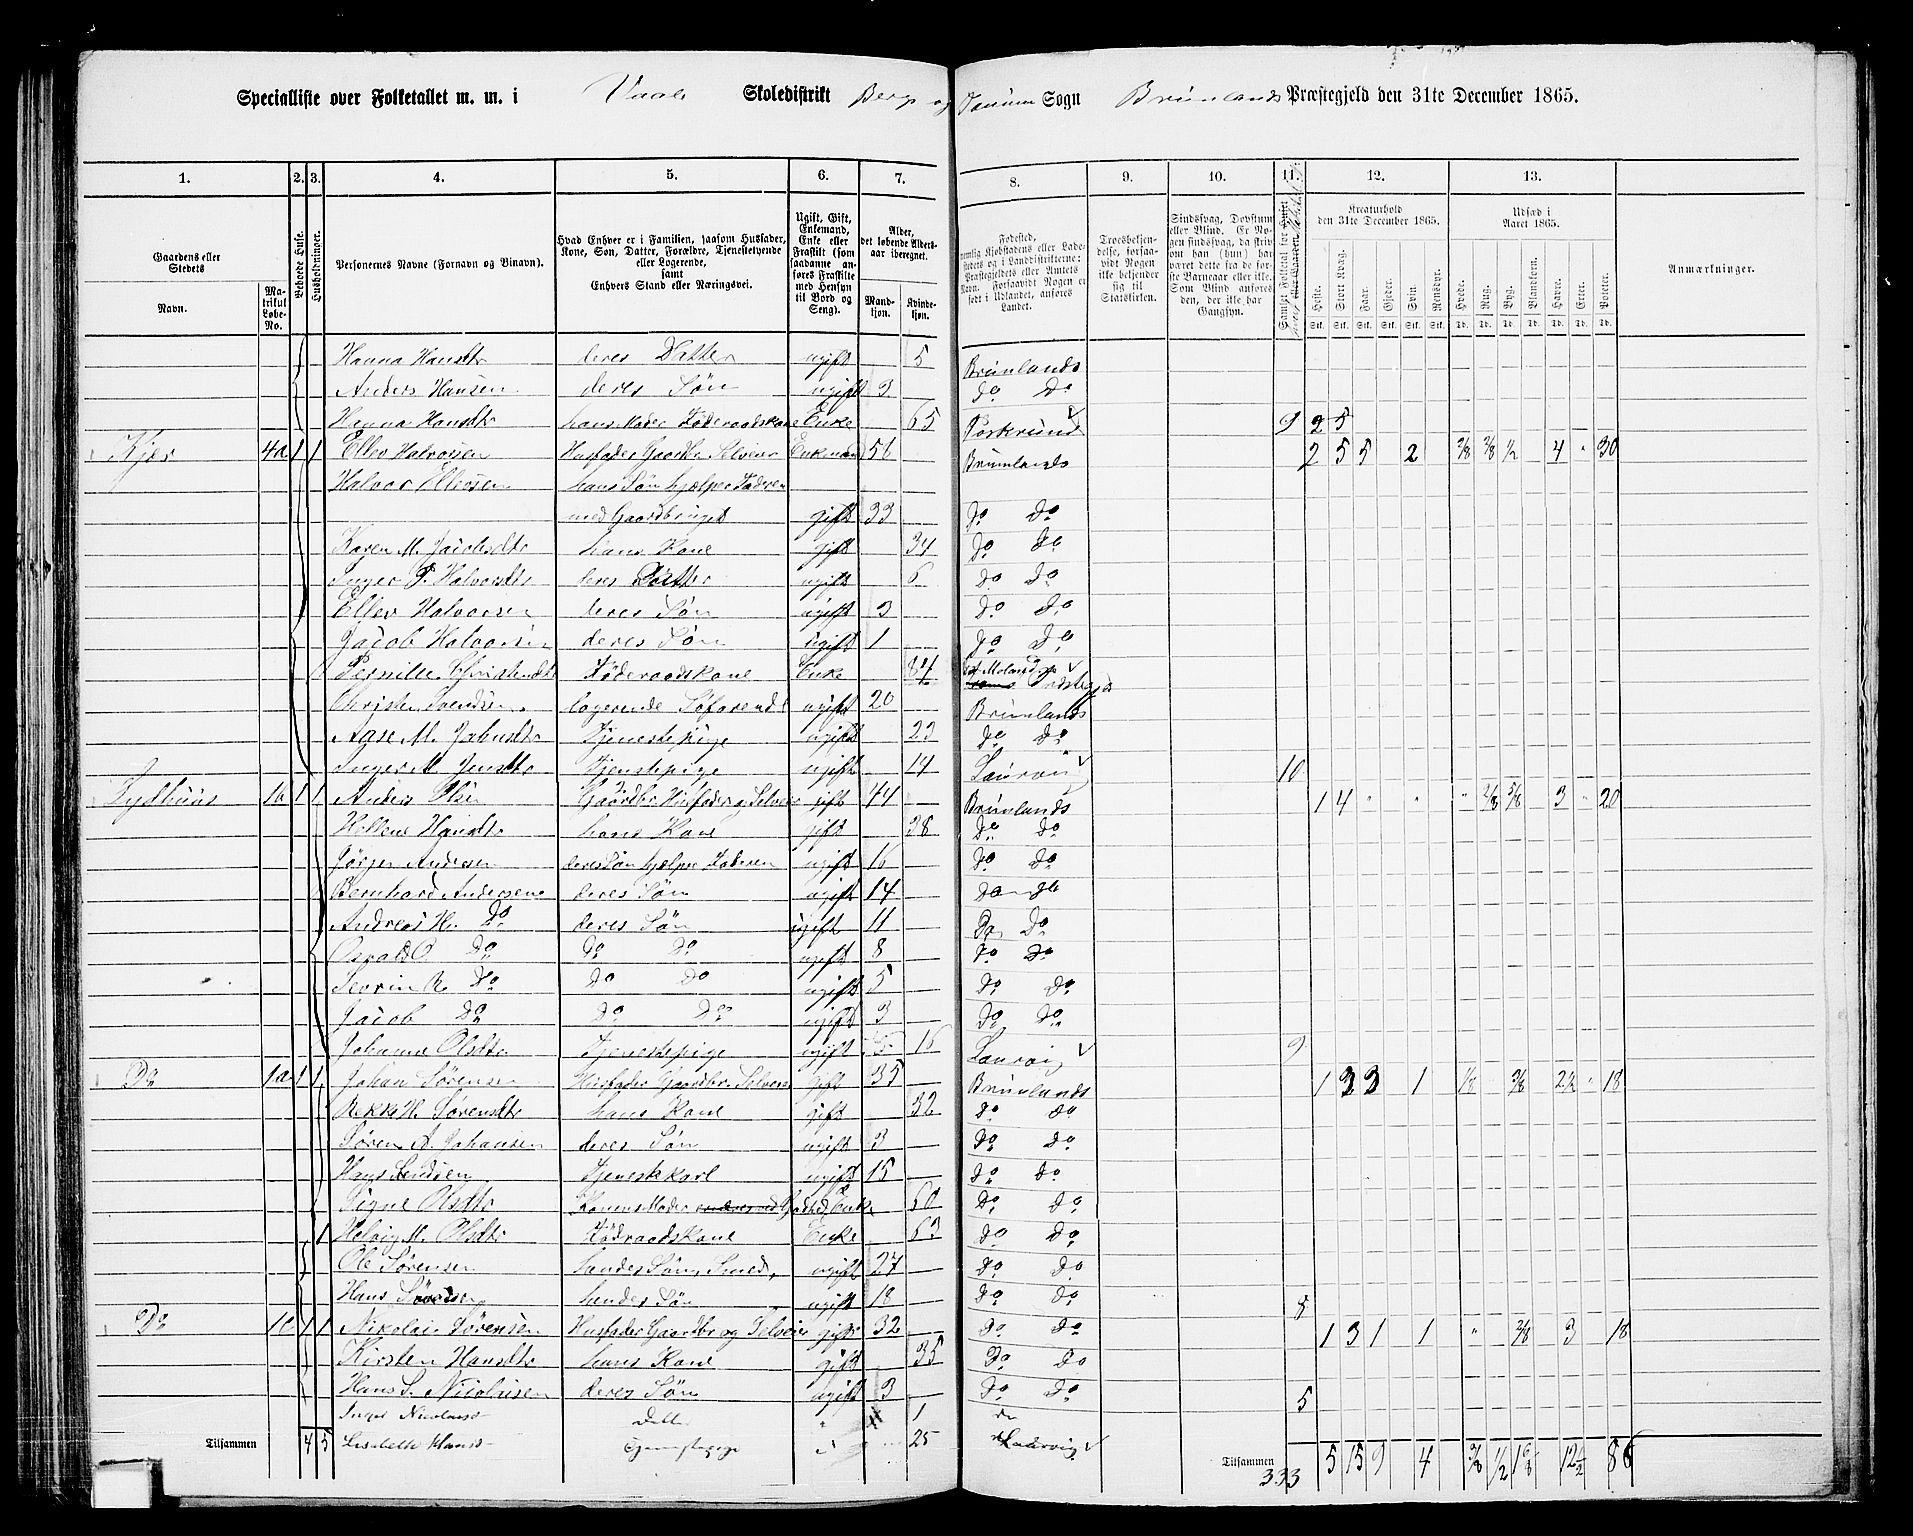 Specialliste over Folketallet m. m. i Vaale Skoledistrikt Berg og Tanum Sogn Brunlands Præstegjeld den 31te December 1865.
1. 2. 3. 4. 5. 6. 7. 8. 9. 10. 11. 12. 13.
Gaardens eller Stedets
Navn.
Matrikul Løbe-No.
Beboede Huse.
Husholdninger.
Personernes Navne (Fornavn og Tilnavn).
Hvad Enhver er i Familien, saasom Husfader, Kone, Søn, Datter, Forældre, Tjenestetyende eller Logerende, samt Enhvers Stand eller Næringsvei.
Ugift, Gift, Enkemand, Enke eller Fraskilt (som saadanne anføres Fraskilte med Hensyn til Bord og Seng).
Alder, det løbende Aldersaar iberegnet.
Mandkjøn. Kvindekjøn.
Troesbekjendelse, forsaavidt Nogen ikke bekjender sig til Statskirken.
Sindssvag, Døvstum eller Blind.
Kreaturhold den 31te December 1865.
Heste. Stort Kvæg. Faar. Gjeder. Svin. Rensdyr.
Udsæd i Aaret 1865.
Hvede. Rug. Byg. Blandkorn. Havre. Erter. Poteter.
Anmærkninger.
Hanna Hansdtr deres Datter ugift 5 Brunlands
Anders Hansen deres Søn ugift 3 Do Do
Hanna Hansdtr hans Moder Föderaadskone Enke 65 9 2 5
Kjær 4a 1 1 Ellev Halvorsen Husfader Gaardbr. Selveier Enkemand 56 Brunlands 2 5 5 2 4 30
Halvor Ellevsen hans Søn hjælper Faderen
med Gaardbruget gift 33 Do Do
Karen M. Jacobsdtr hans Kone gift 34 Do Do
Inger P. Halvorsdtr deres Datter ugift 6 Do Do
Ellev Halvorsen deres Søn ugift 3 Do Do
Jacob Halvorsen deres Søn ugift 1 Do Do
Pernille Christensdtr Föderaadskone Enke 84
Christen Svendsen logerende Søfarende ugift 20 Brunlands
Aase M. Jahnsdtr Tjenestepige ugift 23 Do Do
Inger M. Jensdtr Tjenstepige ugift 14 Laurvig 10
1b 1 1 Anders Olsen Gaardbr. Husfader og Selveier gift 44 Brunlands 1 4 " " " 2/8 5/8 3 " 20
Hellene Hansdtr hans Kone gift 38 Do Do
Jørgen Andersen deres Søn hjælper Faderen ugift 16 Do Do
Bernhard Andersen deres Søn ugift 14 Do Do
Andreas H. Do deres Søn ugift 11 Do Do
Osvald O. Do Do Do ugift 8 Do Do
Sevrin R. Do Do Do ugift 5 Do Do
Jacob Do Do Do ugift 3 Do Do
Johanne Olsdtr Tjenestepige ugift 16 Laurvig 9
Do 1a 1 1 Johan Sørensen Husfader Gaardbr. Selveier gift 35 Brunlands 1 3 3 1 1/8 3/8 2 1/2 " 18
H. Sørensdtr hans Kone gift 32 Do Do
Søren A. Johansen deres Søn ugift 3 Do Do
Hans Tjenestekarl ugift 15 Do Do
Signe Olsdtr Konens Moder Enke 60 Do Do
1 Helvig M. Olsdtr Föderaadskone Enke 63 Do Do
Ole Sørensen hendes Søn, Smed, ugift 27 Do Do
Hans Sørensen hendes Søn ugift 18 Do Do 8
Do 1c 1 1 Nikolai Sørensen Husfader Gaardbr og Selveier gift 32 Do Do 1 3 1 1 " 3/8 3 18
Kirsten Hansdtr hans Kone gift 35 Do Do
Hans S. Nicolaisen deres Søn ugift 3 Do Do 5
Inger Datter " 1 Do
Tilsammen 4 5 Lisabeth Hansd Tjenestepige 25 Laurvig
Tilsammen 333 5 15 9 4 1/2 12 1/2 86